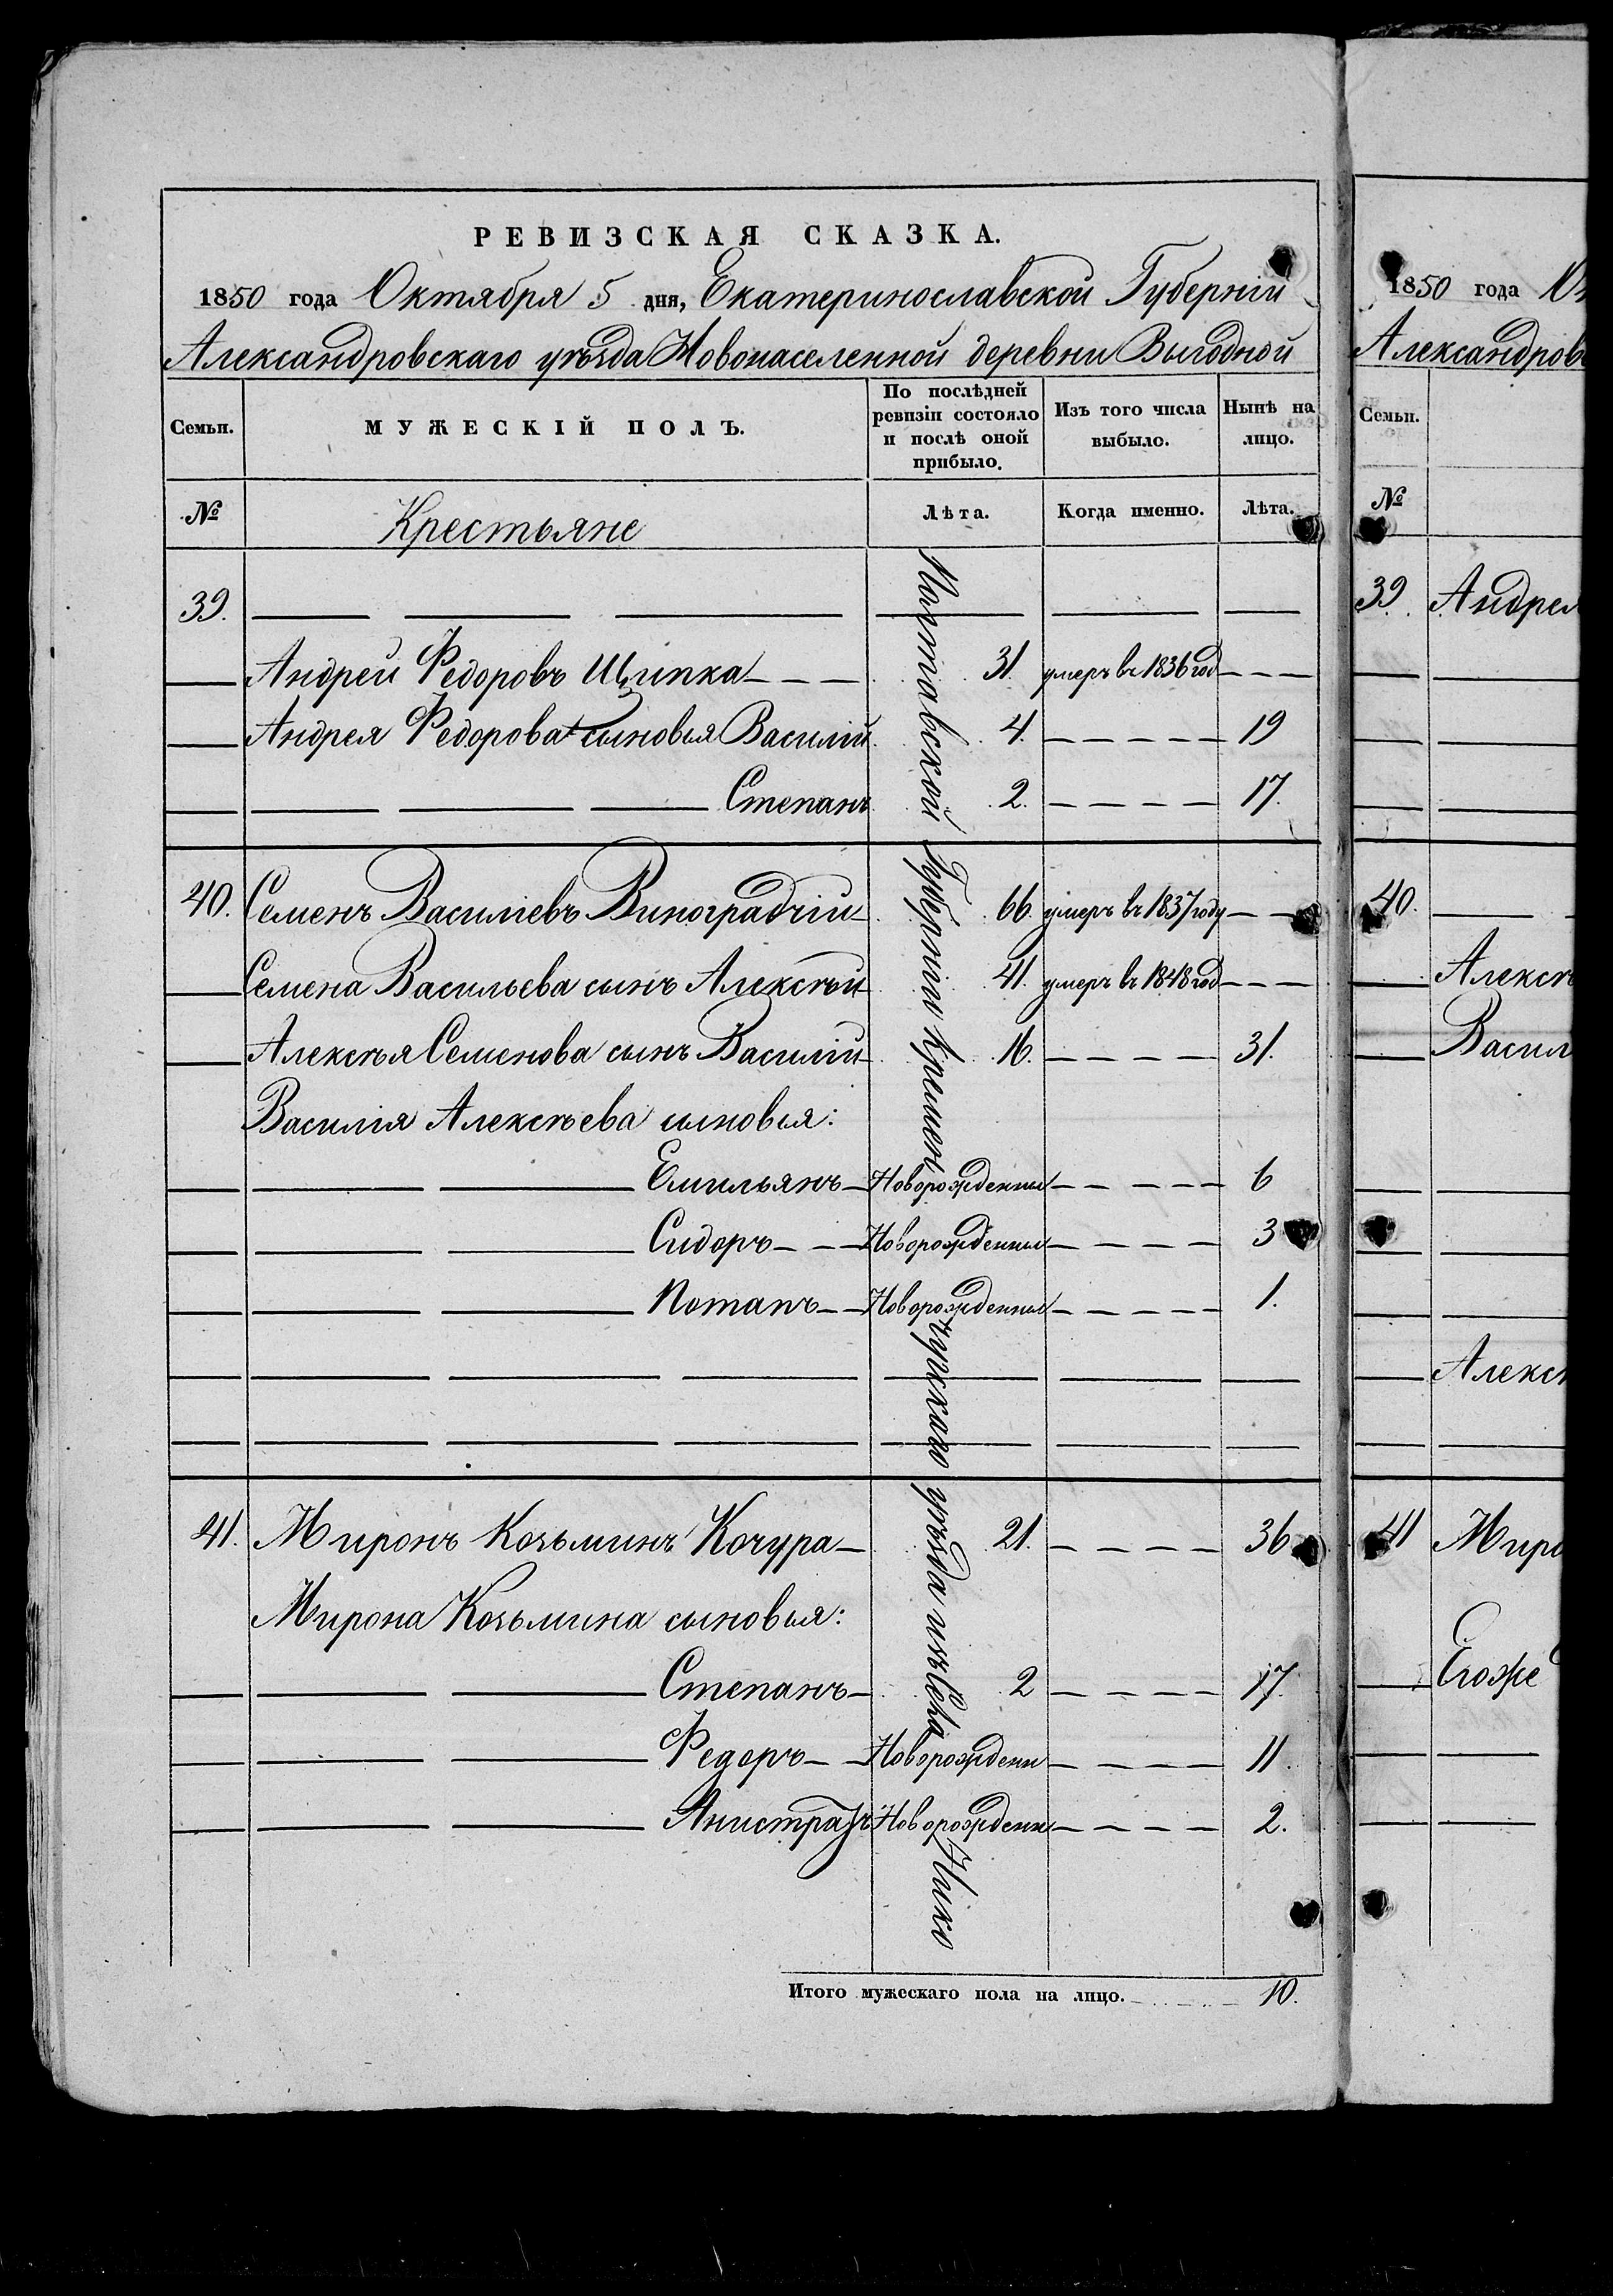 РЕВИЗСКАЯ СКАЗКА.
1850 года Октября 5 дня, Екатеринославской Губерніи
Александровскаго уѣзда Новонаселенной деревни Выгодной
Семьи. МУЖЕСКІЙ ПОЛЪ. По послѣдней ревизіи состояло и послѣ оной прибыло. Изъ того числа выбыло. Нынѣ на лицо.
№ Крестьяне Лѣта. Когда именно. Лѣта.
39.
Андрей Федоровъ Щипка 31. умеръ въ 1836 год
Андрея Федорова сыновья Василій 4. 19
Степанъ 2. 17.
40. Семенъ Василіевъ Виноградчій 66. умеръ въ 1837 году
Семена Васильева сынъ Алексѣй 41. умеръ въ 1848 год
Алексѣя Семенова сынъ Василій 16. 31.
Василія Алексѣева сыновья:
Емильянъ Новорожденный 6
Сидоръ Новорожденный 3
Потапъ Новорожденный 1.
41. Миронъ Козьминъ Кочура 21. 36
Мирона Козьмина сыновья:
Степанъ 2 17.
Федоръ Новорожденн 11.
Анистратъ Новорожденн 2.
Полтавской Губерніи Кременчугскаго уѣзда изъ села
Итого мужескаго пола на лицо. 10.
1850 года
Александров
Семьи.
№
39. Андрея
40.
Алексѣ
Васил
Алексѣ
41 Миро
Егоже